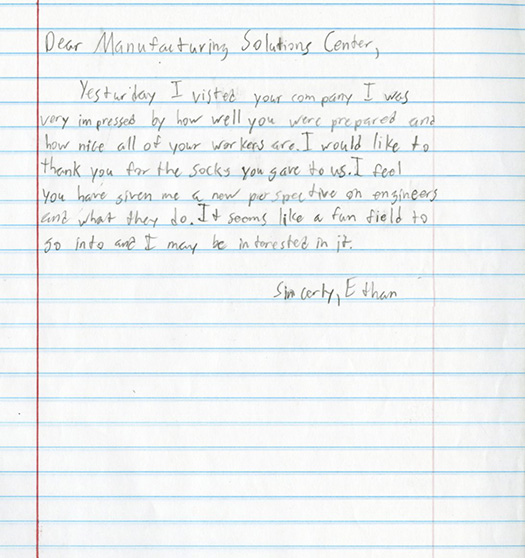 Dear Manufacturing Solutions Center,
Yesturday I visted your company I was
very impressed by how well you were prepared and
how nice all of your workers are. I would like to
thank you for the socks you gave to us. I feel
you have given me a new perspective on engineers
and what they do. It seems like a fun field to
go into and I may be interested in it.
Sincerly, Ethan